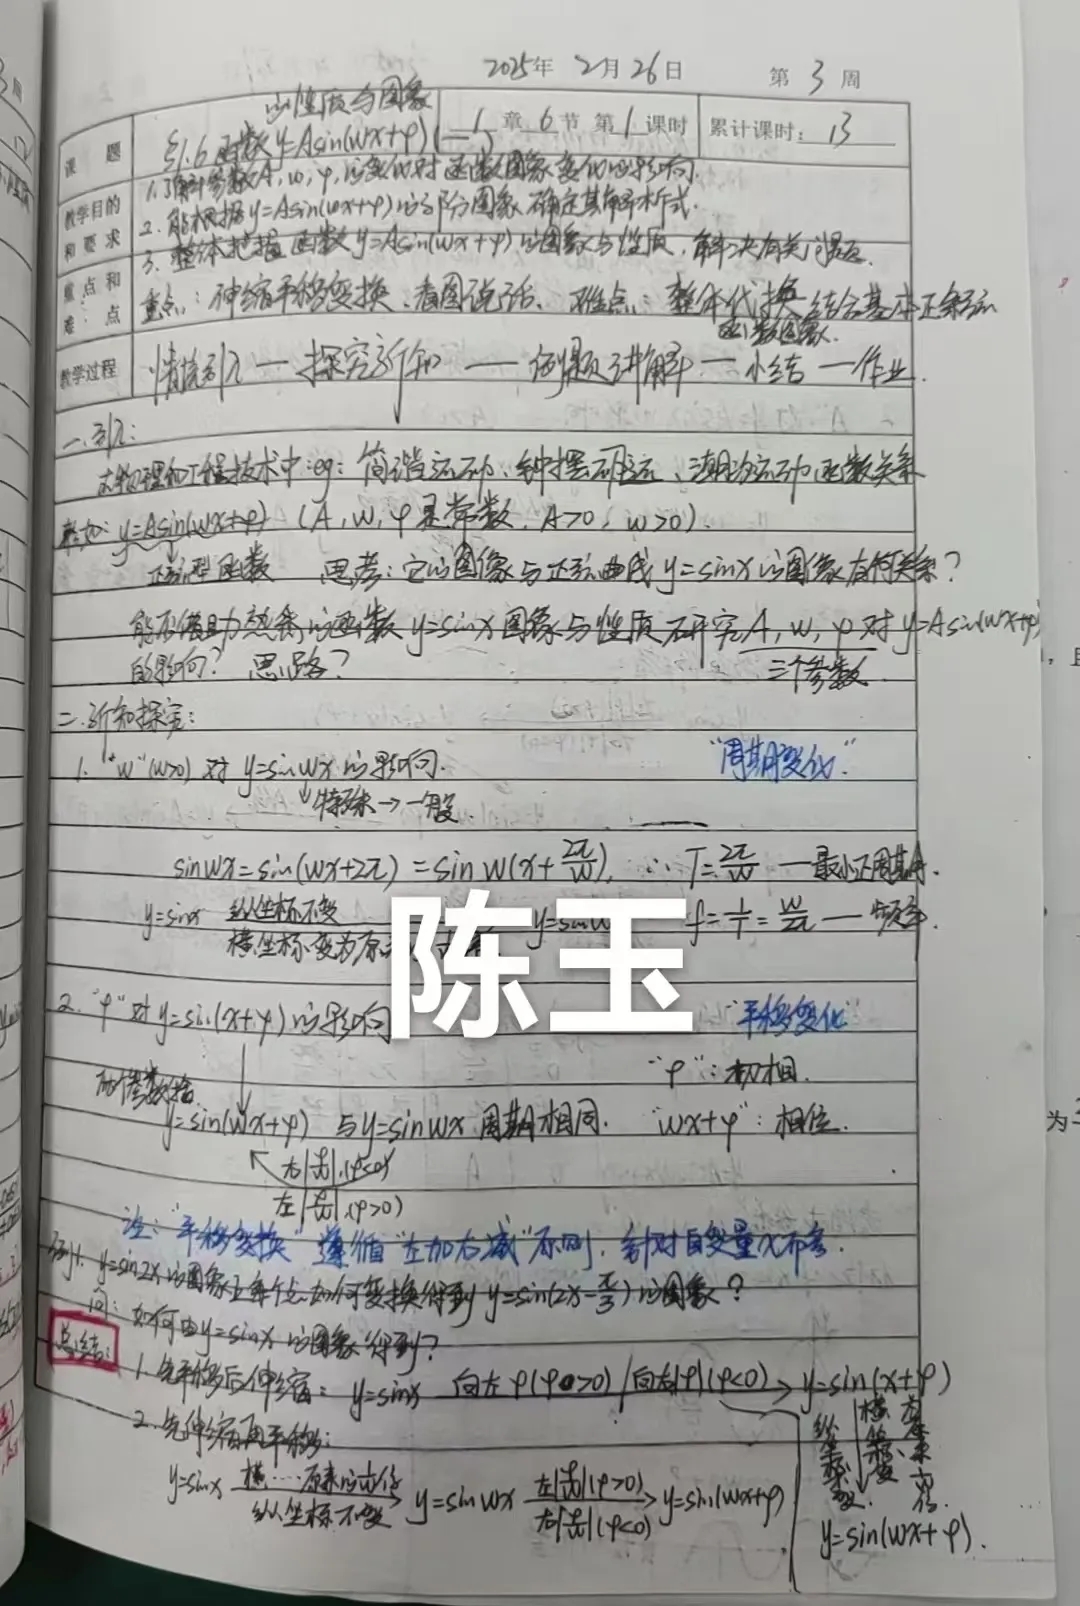 2025年 2月 26日 第 3 周
的性质与图象
课题 §1.6 函数y=Asin(wx+φ)(一) 1 章 6 节 第 1 课时 累计课时: 13
教学目的和要求
1. 了解参数A, w, φ, 的变化对函数图象变化的影响.
2. 能根据y=Asin(wx+φ)的部分图象确定其解析式.
3. 整体把握函数y=Asin(wx+φ)的图象与性质, 解决有关问题.
重点和难点
重点: 伸缩平移变换、看图说话. 难点: 整体代换, 结合基本正余弦
函数图象.
教学过程 情境引入 — 探究新知 — 例题讲解 — 小结 — 作业.
一. 引入:
在物理和工程技术中 eg: 简谐运动、钟摆 、潮汐运动函数关系
形如: y=Asin(wx+φ) (A, w, φ是常数, A>0, w>0).
正弦型函数 思考: 它的图像与正弦曲线y=sinx的图象有何关系?
能否借助熟悉的函数y=sinx图象与性质研究A, w, φ对y=Asin(wx+φ)
的影响? 思路? 三个参数
二. 新知探究:
1. "w"(w>0)对y=sinwx的影响. "周期变化"
特殊→一般.
sinwx=sin(wx+2π)=sin w(x+2π/w), ∴ T=2π/w —最小正周期.
y=sinx 纵坐标不变 y=sinw f=1/T=w/2π — 频率
横坐标变为原
陈玉
2. "φ"对y=sin(x+φ)的影响 "平移变化"
"φ": 初相.
两个参数 y=sin(wx+φ) 与y=sinwx周期相同. "wx+φ": 相位.
右|φ/w|.(φ<0)
左|φ/w|.(φ>0)
注: "平移变换"遵循"左加右减"原则, 针对自变量x而言.
例1. y=sin2x的图象上每个点如何变换得到y=sin(2x-π/3)的图象?
问: 如何由y=sinx的图象得到?
总结:
1. 先平移后伸缩: y=sinx 向左φ(φ>0)/向右|φ|(φ<0) → y=sin(x+φ)
纵坐标不变. 横坐标变 原来 倍.
y=sin(wx+φ).
2. 先伸缩再平移:
y=sinx 横…原来的 倍 纵坐标不变 → y=sinwx 左|φ/w|(φ>0) 右|φ/w|(φ<0) → y=sin(wx+φ)